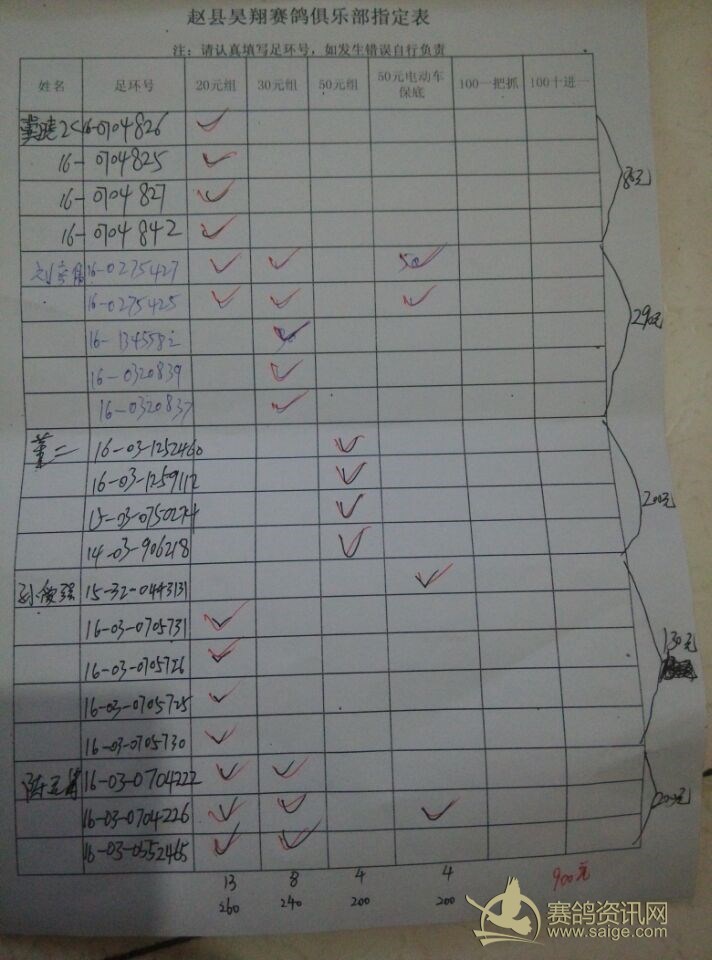 赵县昊翔赛鸽俱乐部指定表
注：请认真填写足环号，如发生错误自行负责
姓名 足环号 20元组 30元组 50元组 50元电动车保底 100一把抓 100十进一
16-0704826
16-0704825
16-0704827
16-0704842
80元
16-0275427 50
16-0275425
16-
16-0320839
16-0320837
290元
董二 16-03-1252460
16-03-1259112
15-03-0750274
14-03-906218
200元
15-32-0443131
16-03-0705731
16-03-0705726
16-03-0705725
16-03-0705730
130元
16-03-0704222
16-03-0704226
16-03-0552465
200元
13 8 4 4 900元
260 240 200 200
赛鸽资讯网
www.saige.com